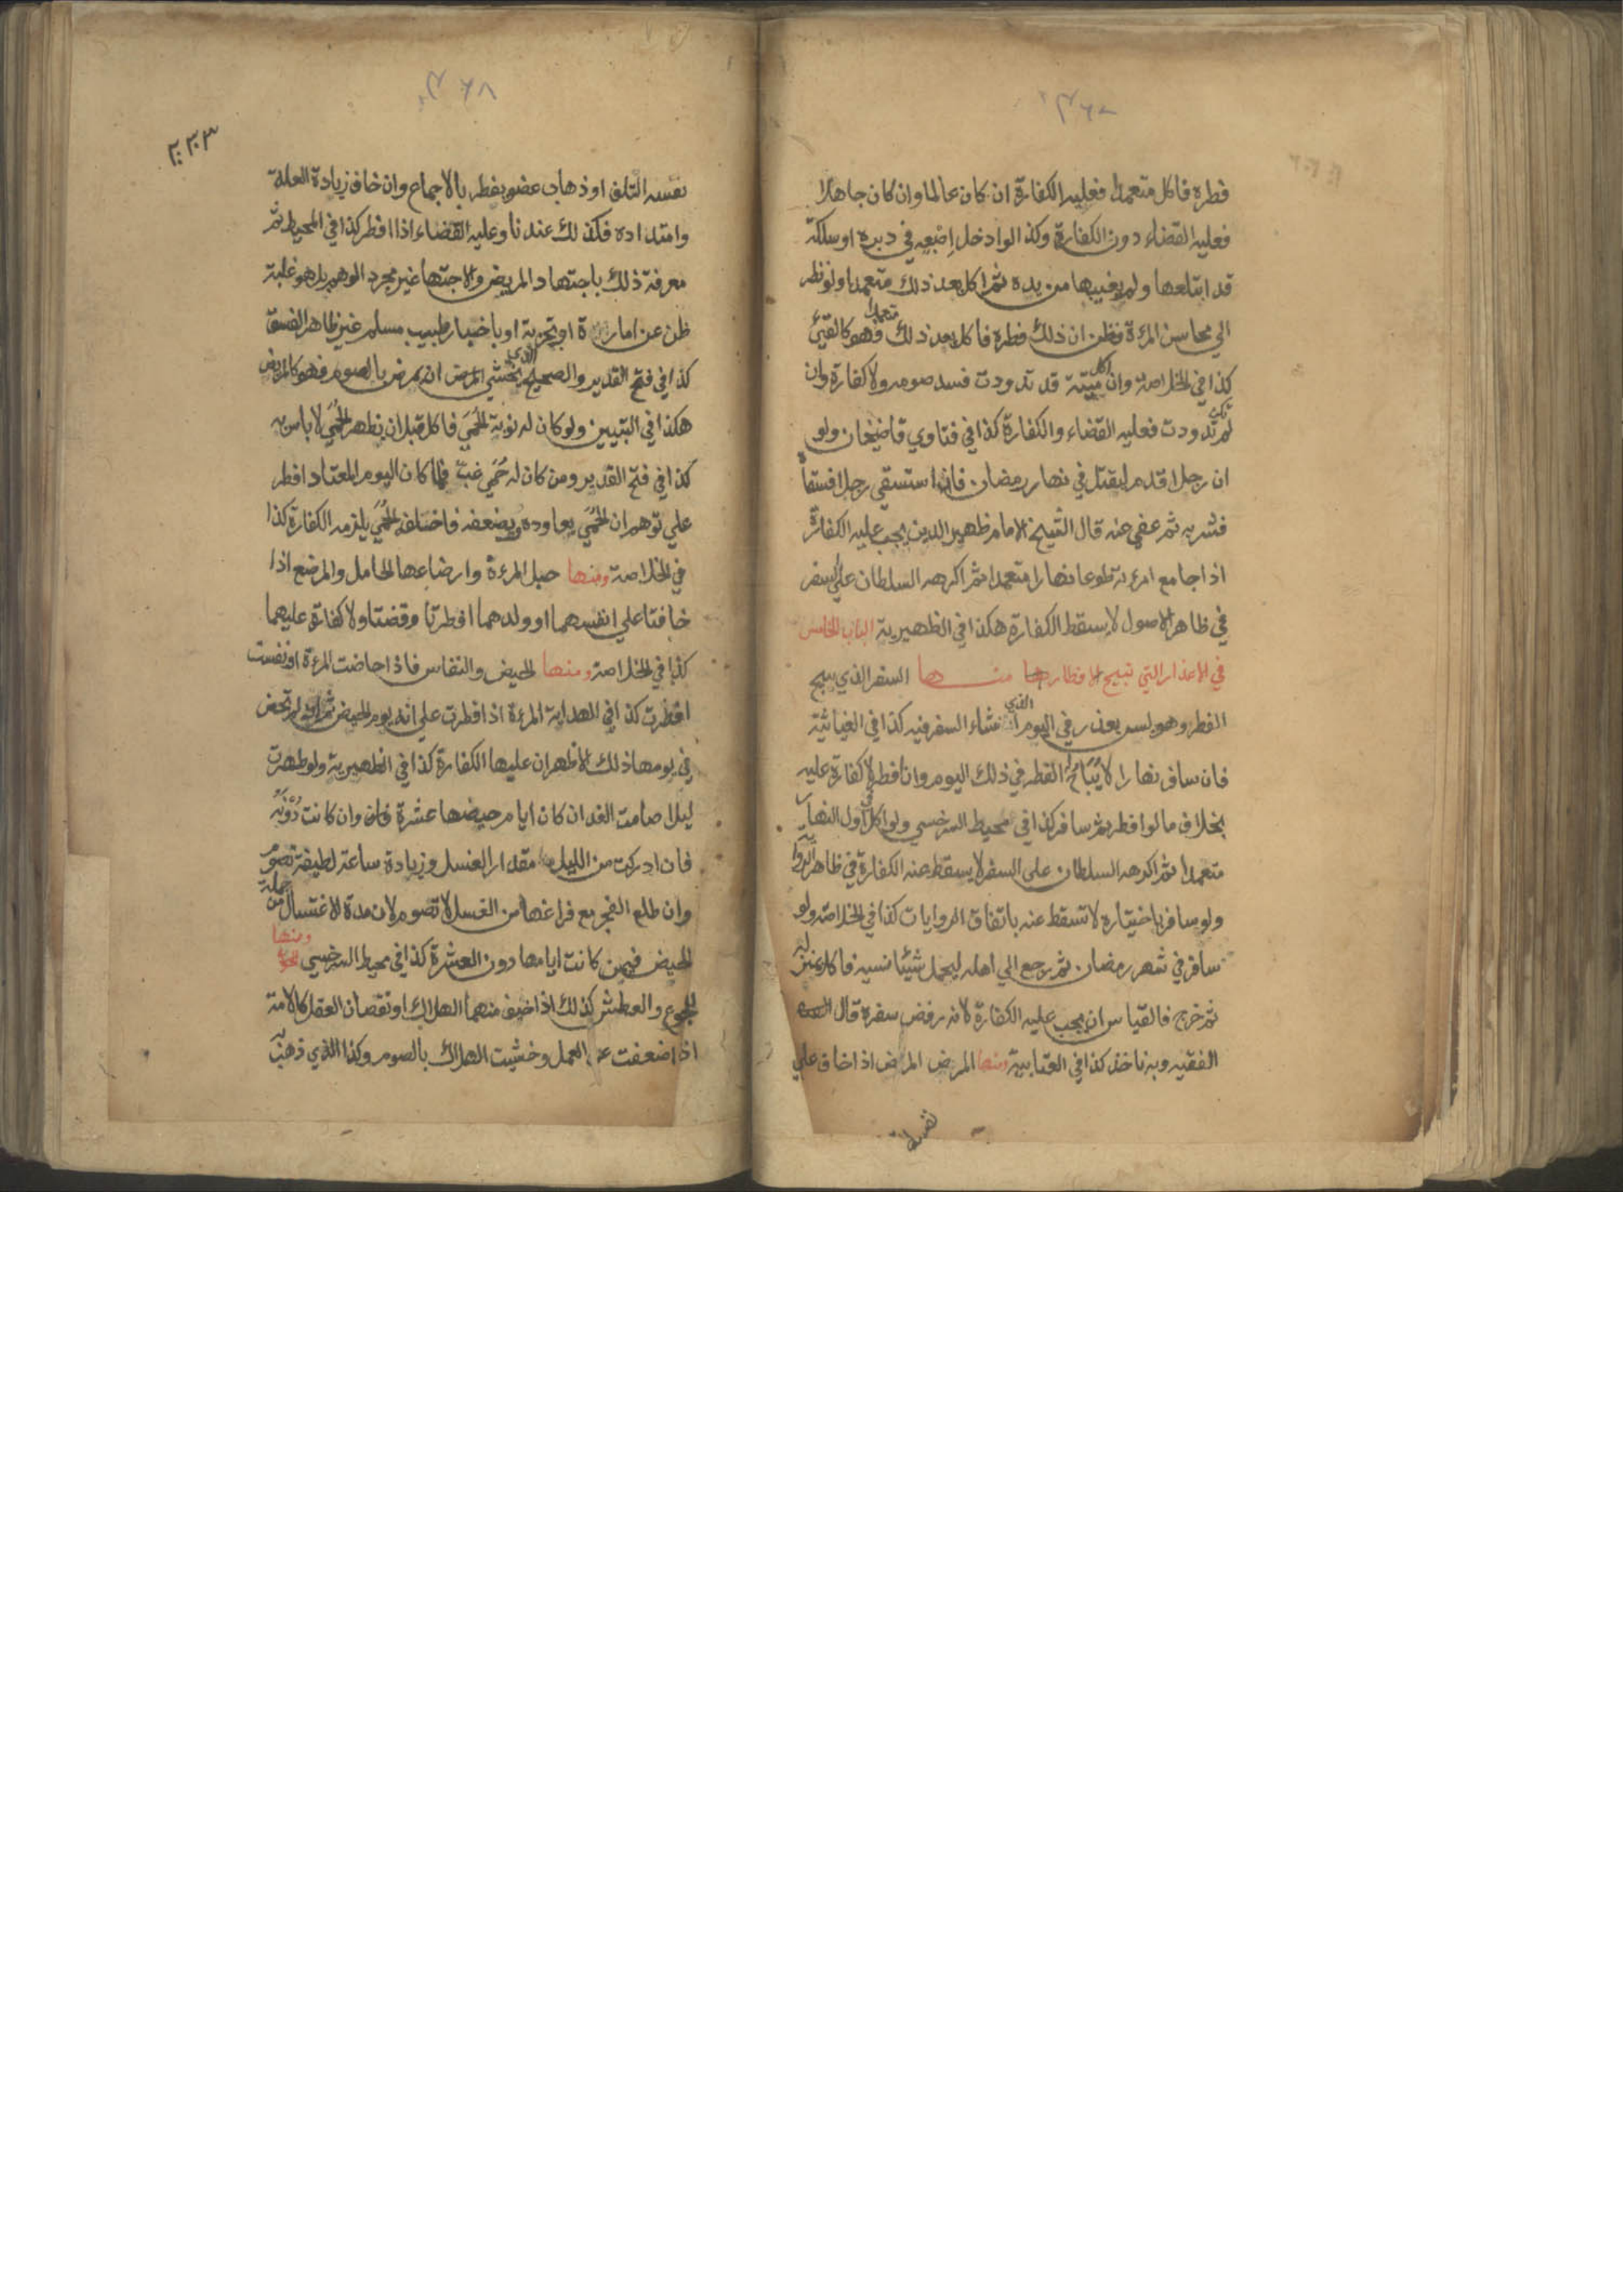 ٣٦٧
فطره فاكل متعمدا فعليه الكفارة ان كان عالما وان كان جاهلا
فعليه القضاء دون الكفارة وكذا لوادخل اصبعه في دبره او سلكة
قد ابتلعها ولم يغيبها من يده ثم اكل بعد ذلك متعمدا ولو نظر
الي محاسن المرءة وظن ان ذلك فطره فاكل بعد ذلك متعمدا فهو كالقيئ
كذا في الخلاصة وان اكل ميتة قد تدودت فسد صومه ولا كفارة وان
لم تكن تدودت فعليه القضاء والكفارة كذا في فتاوي قاضيخان ولو
ان رجلا قدم ليقتل في نهار رمضان فاستسقي رجلا فسقاه
فشربه ثم عفي عنه قال الشيخ الامام ظهير الدين يجب عليه الكفارة
اذا جامع امرءته طوعا نهارا متعمدا ثم اكرهه السلطان علي السفر
في ظاهر الاصول لا يسقط الكفارة هكذا في الظهيرية الباب الخامس
في الاعذار التي تبيح الافطار منها السفر الذي يبيح
الفطر وهو ليس بعذر في اليوم الذي انشاء السفر فيه كذا في الغياثية
فان سافر نهارا لا يباح له الفطر في ذلك اليوم وان افطر لا كفارة عليه
بخلاف ما لو افطر ثم سافر كذا في محيط السرخسي ولو اكل في اول النهار
متعمدا ثم اكرهه السلطان على السفر لا يسقط عنه الكفارة في ظاهر الرواية
ولو سافر باختياره لا تسقط عنه باتفاق الروايات كذا في الخلاصة ولو
سافر في شهر رمضان ثم رجع الي اهله ليحمل شيئا نسيه فاكل بمنزله
ثم خرج فالقياس ان يجب عليه الكفارة لانه رفض سفره قال
الفقيه وبه ناخذ كذا في العتابية ومنها المرض المرض اذا خاف علي
نفسه
٣٦٨
٣٠٣
نفسه التلف او ذهاب عضو يفطر بالاجماع وان خاف زيادة العلة
وامتداده فكذلك عندنا وعليه القضاء اذا افطر كذا في المحيط ثم
معرفة ذلك باجتهاد المريض والاجتهاد غير مجرد الوهم بل هو غلبة
ظن عن امارة او تجربة او باخبار طبيب مسلم غير ظاهر الفسق
كذا في فتح القدير والصحيح الذي يخشي المرض ان يمرض بالصوم فهو كالمريض
هكذا في التبيين ولو كان له نوبة الحمي فاكل قبل ان يظهر الحمي لا باس به
كذا في فتح القدير ومن كان له حمي غب فلما كان اليوم المعتاد افطر
علي توهم ان الحمي يعاوده ويضعفه فاختلف الحمي يلزمه الكفارة كذا
في الخلاصة ومنها حبل المرءة وارضاعها الحامل والمرضع اذا
خافتا علي انفسهما او ولدهما افطرتا وقضتا ولا كفارة عليهما
كذا في الخلاصة ومنها الحيض والنفاس فاذا حاضت المرءة او نفست
افطرت كذا في الهداية المرءة اذا فطرت علي انه يوم الحيض ثم انه لم تحض
في يومها ذلك الاظهر ان عليها الكفارة كذا في الظهيرية ولو طهرت
ليلا صامت الغد ان كان ايام حيضها عشرة وان كانت دونه
فان ادركت من الليل مقدار الغسل وزيادة ساعة لطيفة تصوم
وان طلع الفجر مع فراغها من الغسل لا تصوم لان مدة الاغتسال من جملة
الحيض فيمن كانت ايامها دون العشرة كذا في محيط السرخسي ومنها
الجوع والعطش كذلك اذا خيف منهما الهلاك او نقصان العقل كالامة
اذا ضعفت عن العمل وخشيت الهلاك بالصوم وكذا الذي ذهب به